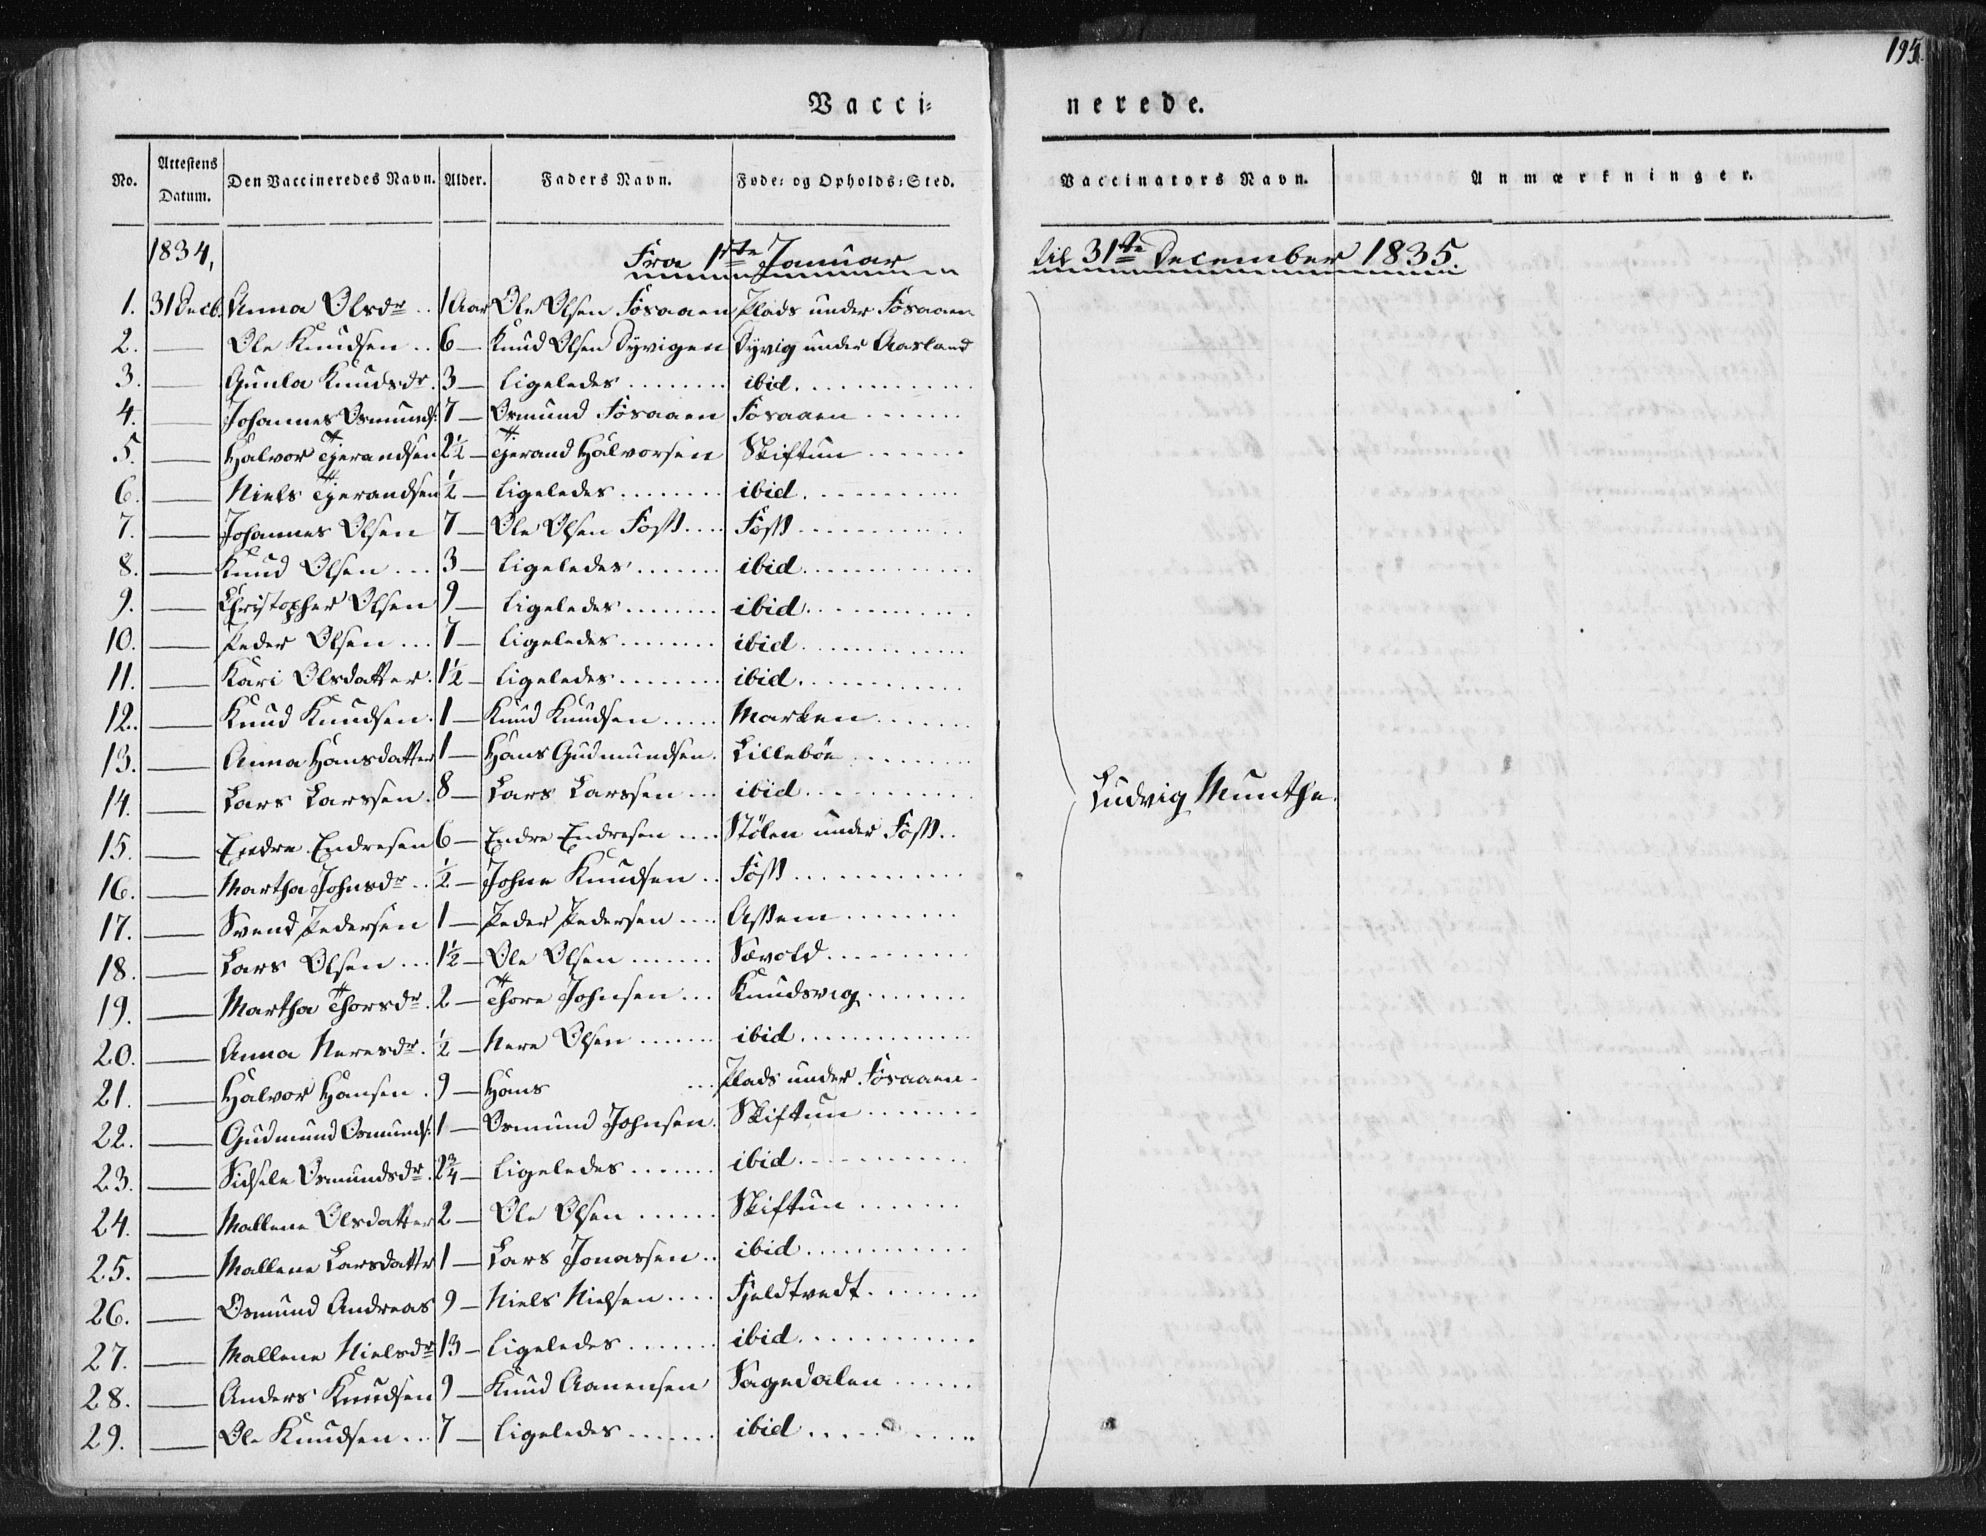 195.
Vacci= nerede.
No. Attestens Datum. Den Vaccineredes Navn. Alder. Faders Navn. Føde- og Opholds-Sted. Vaccinators Navn. Anmærkninger.
1834, Fra 1ste Januar til 31te December 1835.
1. 31 Decb. Anna Olsdr .. 1 Aar Ole Olsen Fosaaen Plads under Fosaaen
2. — Ole Knudsen .. 6 — Knud Olsen Dyvigen Dyvig under Aasland
3. — Gunla Knudsdr. 3 — ligeledes ........ ibid. ..........
4. — Johannes Osmunds: 7 — Osmund Fosaaen Fosaaen .......
5. — Halvor Tjerandsen 2½ — Tjerand Halvorsen Skiftun .......
6. — Niels Tjerandsen ½ — ligeledes ........ ibid. ..........
7. — Johannes Olsen 7 — Ole Olsen Foss .... Foss ..........
8. — Knud Olsen ... 3 — ligeledes ....... ibid ..........
9. — Christopher Olsen 9 — ligeledes ........ ibid ..........
10. — Peder Olsen ... 7 — ligeledes ........ ibid ..........
11. — Kari Olsdatter. 1½ — ligeledes ........ ibid. ..........
12. — Knud Knudsen. 1 — Knud Knudsen ..... Marken .......
13. — Anna Hansdatter 1 — Hans Gudmundsen. Lillebøe ........
14. — Lars Larssen. 8 — Lars Larssen ... ibid ..........
Ludvig Munthe.
15. — Endre Endresen 6 — Endre Endresen .... Stølen under Foss ..
16. — Martha Johnsdr .. ½ — Johne Knudsen .. Foss ..........
17. — Svend Pedersen 1 — Peder Pedersen .... Assem ........
18. — Lars Olsen ... 1½ — Ole Olsen ....... Sævold ........
19. — Martha Thorsdr. 2 — Thore Johnsen ... Knudsvig ........
20. — Anna Neresdr. ½ — Nere Olsen ....... ibid ..........
21. — Halvor Hansen . 9 — Hans ... Plads under Fosaaen.
22. — Gudmund Osmunds: 1 — Osmund Johnsen. Skiftun ........
23. — Sidsele Osmundsdr. 2¾ — ligeledes ....... ibid ..........
24. — Mallene Olsdatter 2 — Ole Olsen ...... Skiftun .......
25. — Mallene Larsdatter 1 — Lars Jonassen .. ibid ..........
26. — Osmund Andreas 9 — Niels Nielsen .... Fjeldtvedt .......
27. — Mallene Nielsdr 13 — ligeledes ....... ibid ..........
28. — Anders Knudsen 9 — Knud Aanensen Fagedalen ......
29. — Ole Knudsen ... 7 — ligeledes ....... ibid ..........